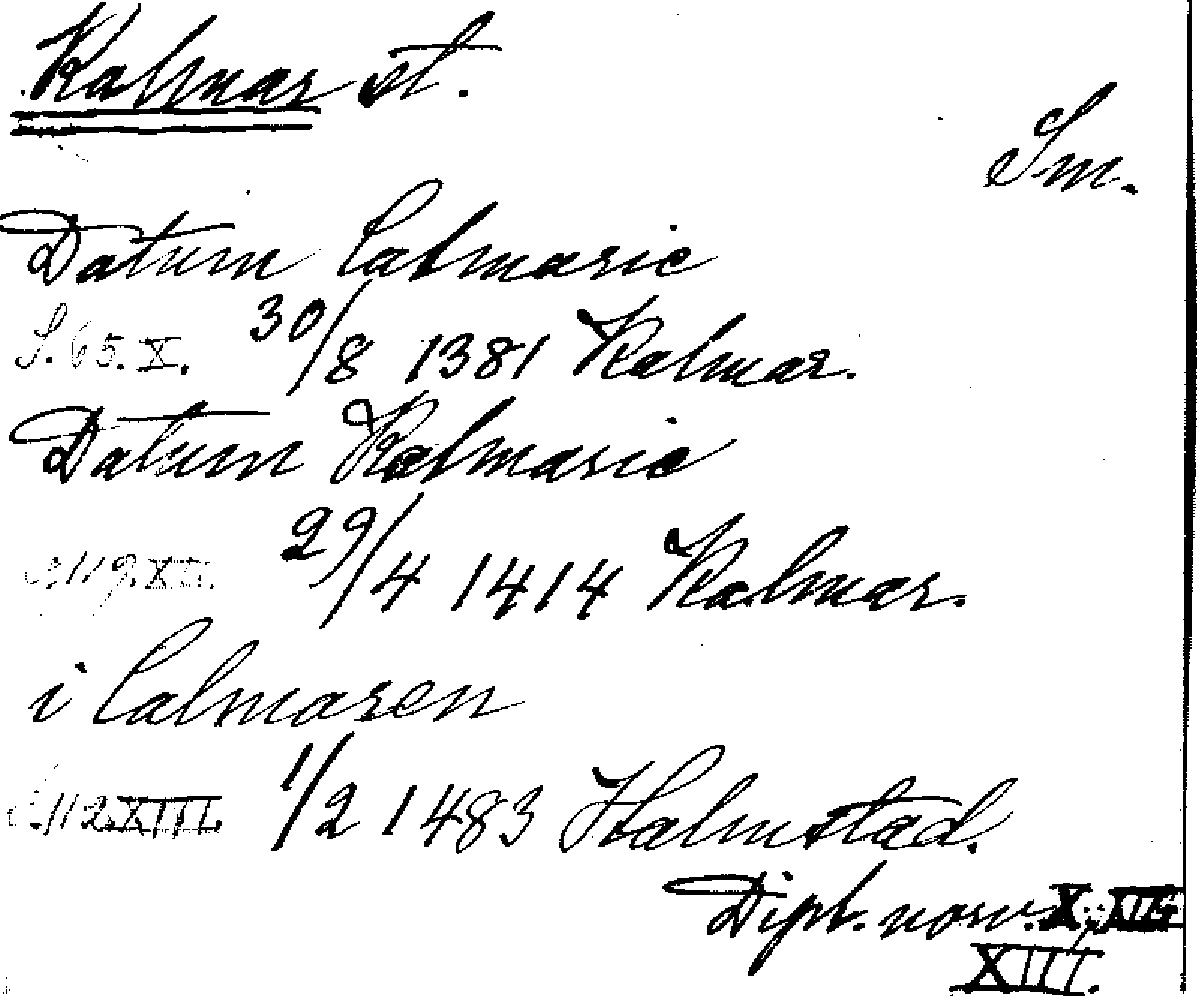 Kalmar st.
Sm.
Datum Calmarie
S. 65. X. 30/8 1381 Kalmar.
Datum Kalmarie
S. 119. XII. 29/4 1414 Kalmar.
i Calmaren
S. 112. XIII. 1/2 1483 Halmstad.
Dipl. norv. X, XII,
XIII.